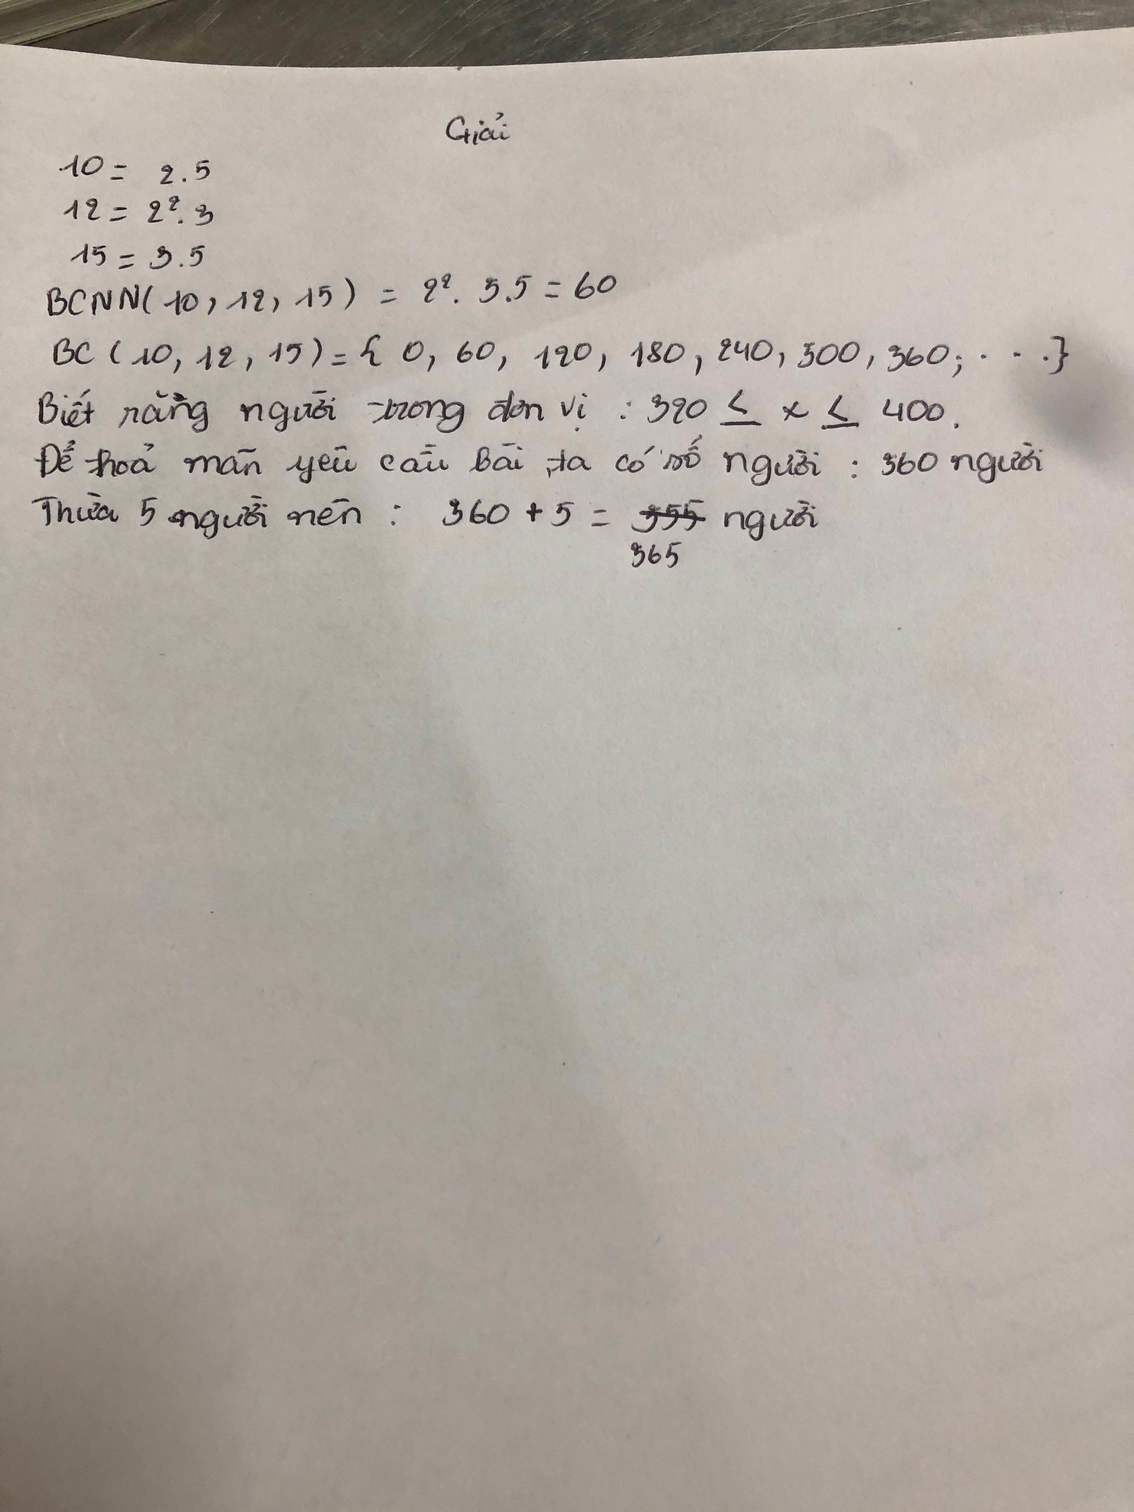 Giải
10 = 2.5
12 = 2². 3
15 = 3.5
BCNN(10, 12, 15) = 2². 3.5 = 60
BC (10, 12, 15) = { 0, 60, 120, 180, 240, 300, 360; . . . }
Biết rằng người trong đơn vị : 320 ≤ x ≤ 400.
Để thoả mãn yêu cầu bài, ta có số người : 360 người
Thừa 5 người nên : 360 + 5 = 355 người
365